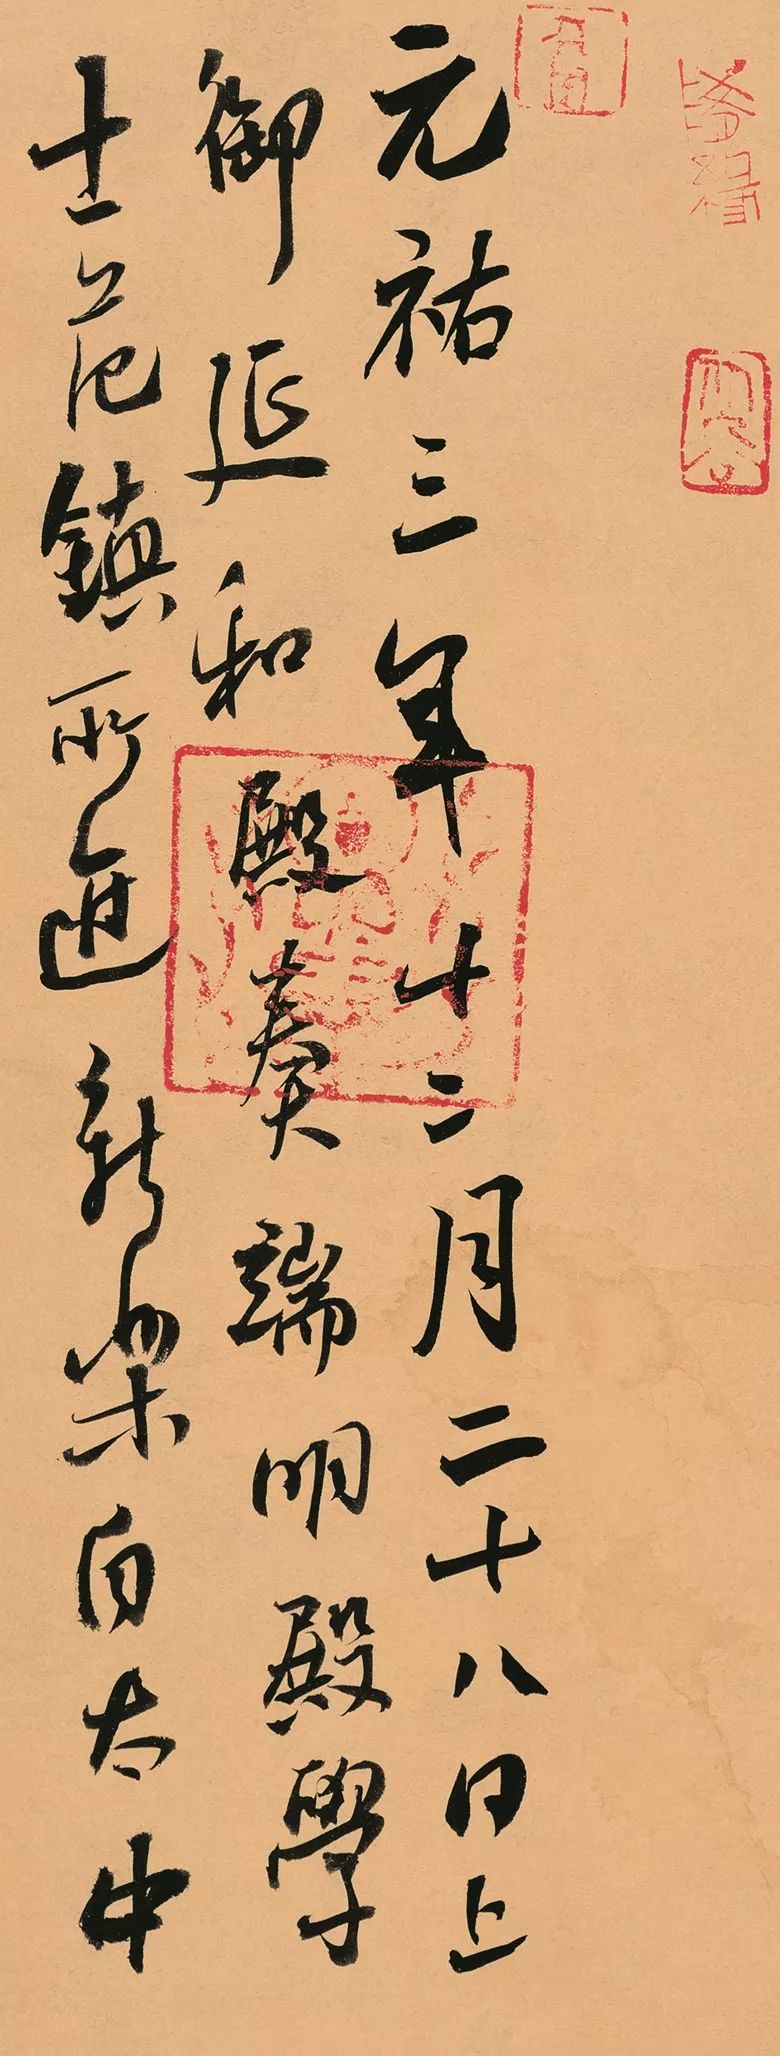 元祐三年十二月二十八日上
御延和殿奏端明殿學
士范鎮所進新樂自太中